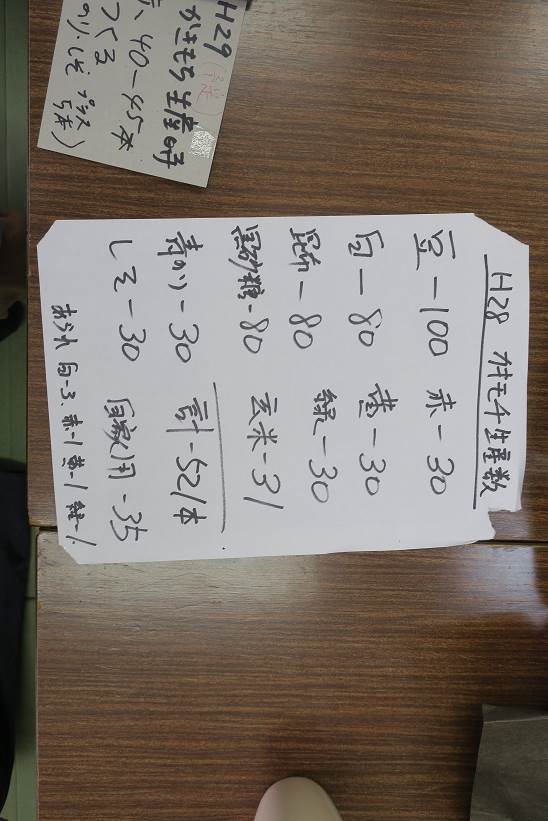 H28 カキモチ生産数
豆－100 赤－30
白－80 黄－30
昆布－80 緑－30
黒砂糖－80 玄米－31
青のり－30 計－521本
しそ－30 自家用－35
あられ 白－3、赤－1 黄－1 緑－1
H29
かきもち生産時
40－45本
つくる
のり、しそ プラス
5本)